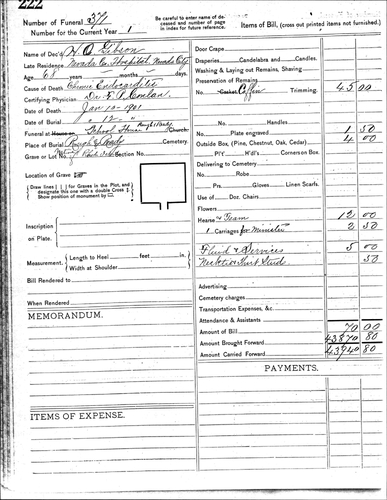 222
Number of Funeral 379
Number for the Current Year 1
Be careful to enter name of deceased and number of page in index for future reference.
Name of Dec'd H. O. Gibson
Late Residence Nevada Co. Hospital, Nevada City
Age 68 years months days.
Cause of Death Chronic Endocarditis
Certifying Physician Dr.
Date of Death Jan 10- 1901
Date of Burial " 12- "
Funeral at House or School House Rough & Ready Church
Place of Burial Rough & Ready Cemetery.
Grave or Lot No. Section No.
Location of Grave
Draw lines for Graves in the Plot, and designate this one with a double Cross
Show position of monument by
Inscription
on Plate.
Measurement. Length to Heel feet in.
Width at Shoulder
Bill Rendered to
When Rendered
MEMORANDUM.
ITEMS OF EXPENSE.
Items of Bill, (cross out printed items not furnished.)
Door Crape
Draperies Candelabra and Candles.
Washing & Laying out Remains, Shaving
Preservation of Remains
No. Casket Coffin Trimming. 45 00
No. Handles
Plate engraved 1 50
Outside Box, (Pine, Chestnut, Oak, Cedar) 4 00
P'y H'd's Corners on Box.
No. Delivering
No. Robe
Prs. Gloves Linen Scarfs.
Use of Doz. Chairs
Flowers
Hearse & Team 12 00
1 Carriages for Minister 2 50
Fluid & Services 5 00
Necktie & Shirt Studs 50
Advertising
Cemetery charges
Transportation Expenses, &c.
Attendance & Assistants
Amount of Bill 70 00
Amount Brought Forward 43870 80
Amount Carried Forward 43940 80
PAYMENTS.